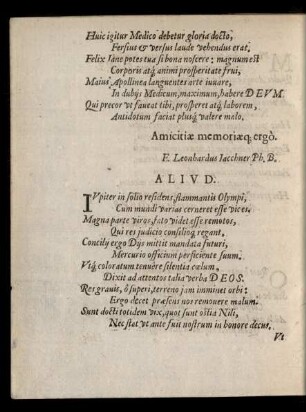 Huic igitur Medico debetur gloria docto,
Fersius & versus laude vehendus erat.
Felix Iane potes tua si bona noscere: magnum est
Corporis atq́; animi prosperitate frui,
Maius Apollinea languentes arte iuuare,
In dubijs Medicum, maximum, habere DEVM.
Qui precor vt faueat tibi, prosperet atq́; laborem,
Antidotum faciat plusq́; valere malo.
Amicitiæ memoriæq; ergò.
F. Leonhardus Iacchner Ph. B.
ALIVD.
IVpiter in solio residens, flammantis Olympi,
Cum mundi varias cerneret esse vices.
Magna parte viros, foto videt esse remotos,
Qui res judicio consilioq́; regant.
Concilij ergo Dijs mittit mandata futuri,
Mercurio officium perficiente suum.
Vtq́; coloratum tenuêre silentia cœlum,
Dixit ad attentos talia verba DEOS.
Res grauis, ô superi, terreno jam imminet orbi:
Ergo decet præsens nos remouere malum.
Sunt docti totidem vix, quot sunt ostia Nili,
Nec stat vt ante fuit nostrum in honore decus.
Vt